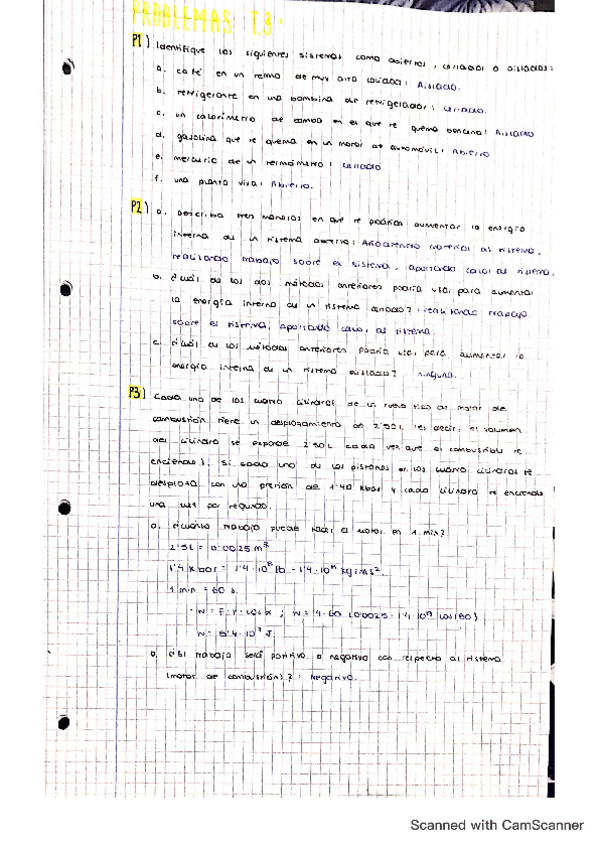 PROBLEMAS T.3:
P1) Identifique los siguientes sistemas como abiertos, cerrados o aislados:
a. café en un termo de muy alta calidad: Aislado.
b. refrigerante en una bombina de refrigerador: cerrado.
c. un calorímetro de bomba en el que se quema benceno: Aislado
d. gasolina que se quema en un motor de automóvil: Abierto
e. mercurio de un termómetro: cerrado
f. una planta viva: Abierto.
P2) a. Describa tres maneras en que se podría aumentar la energía
interna de un sistema abierto: Añadiendo material al sistema,
realizando trabajo sobre el sistema, aportando calor al sistema.
b. ¿cuál de los dos métodos anteriores podría usar para aumentar
la energía interna de un sistema cerrado?: realizando trabajo
sobre el sistema, aportando calor al sistema.
c. ¿cuál de los métodos anteriores podría usar para aumentar la
energía interna de un sistema aislado? ninguno.
P3) Cada uno de los cuatro cilindros de un nuevo tipo de motor de
combustión tiene un desplazamiento de 2'50L (es decir, el volumen
del cilindro se expande 2'50L cada vez que el combustible se
enciende). Si cada uno de los pistones en los cuatro cilindros se
desplaza con una presión de 1'40 kbar y cada cilindro se enciende
una vez por segundo.
a. ¿cuánto trabajo puede hacer el motor en 1 min?
2'5L = 0'0025 m³
1 min = 60 s.
b. ¿El trabajo será positivo o negativo con respecto al sistema
(motor de combustión)?: Negativo.
Scanned with CamScanner